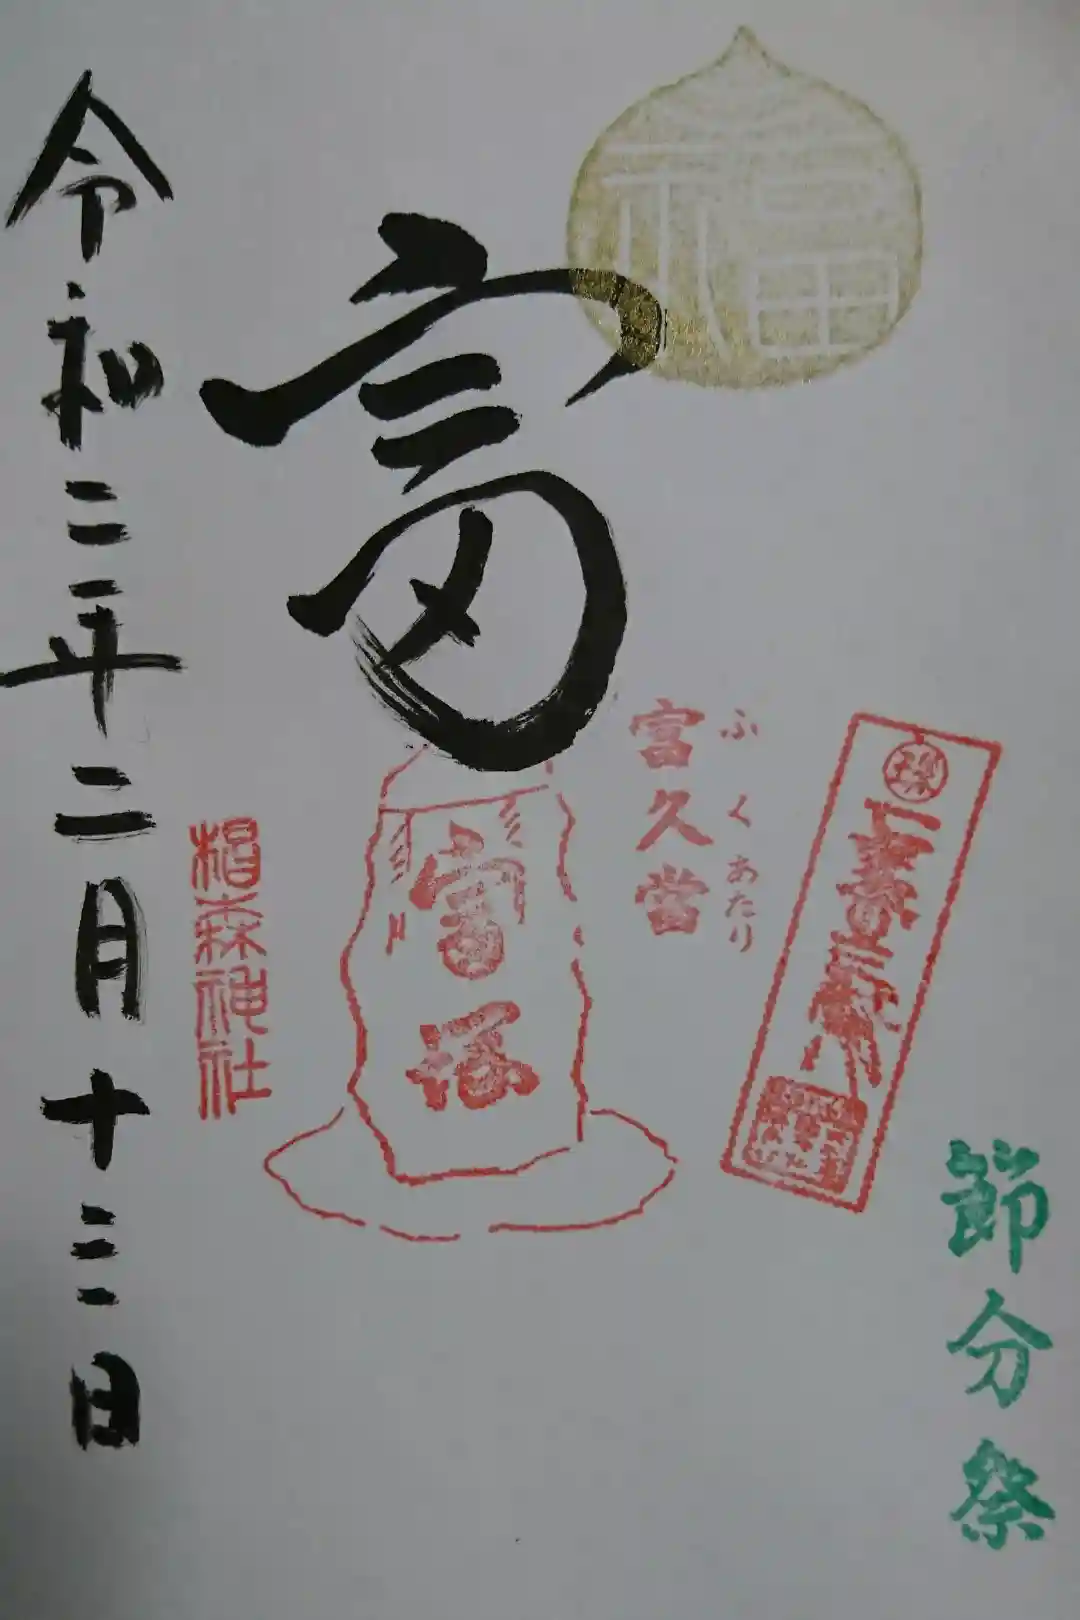 節分祭
福
ふくあたり
富久當
富
富塚
椙森神社
令和二年二月十三日